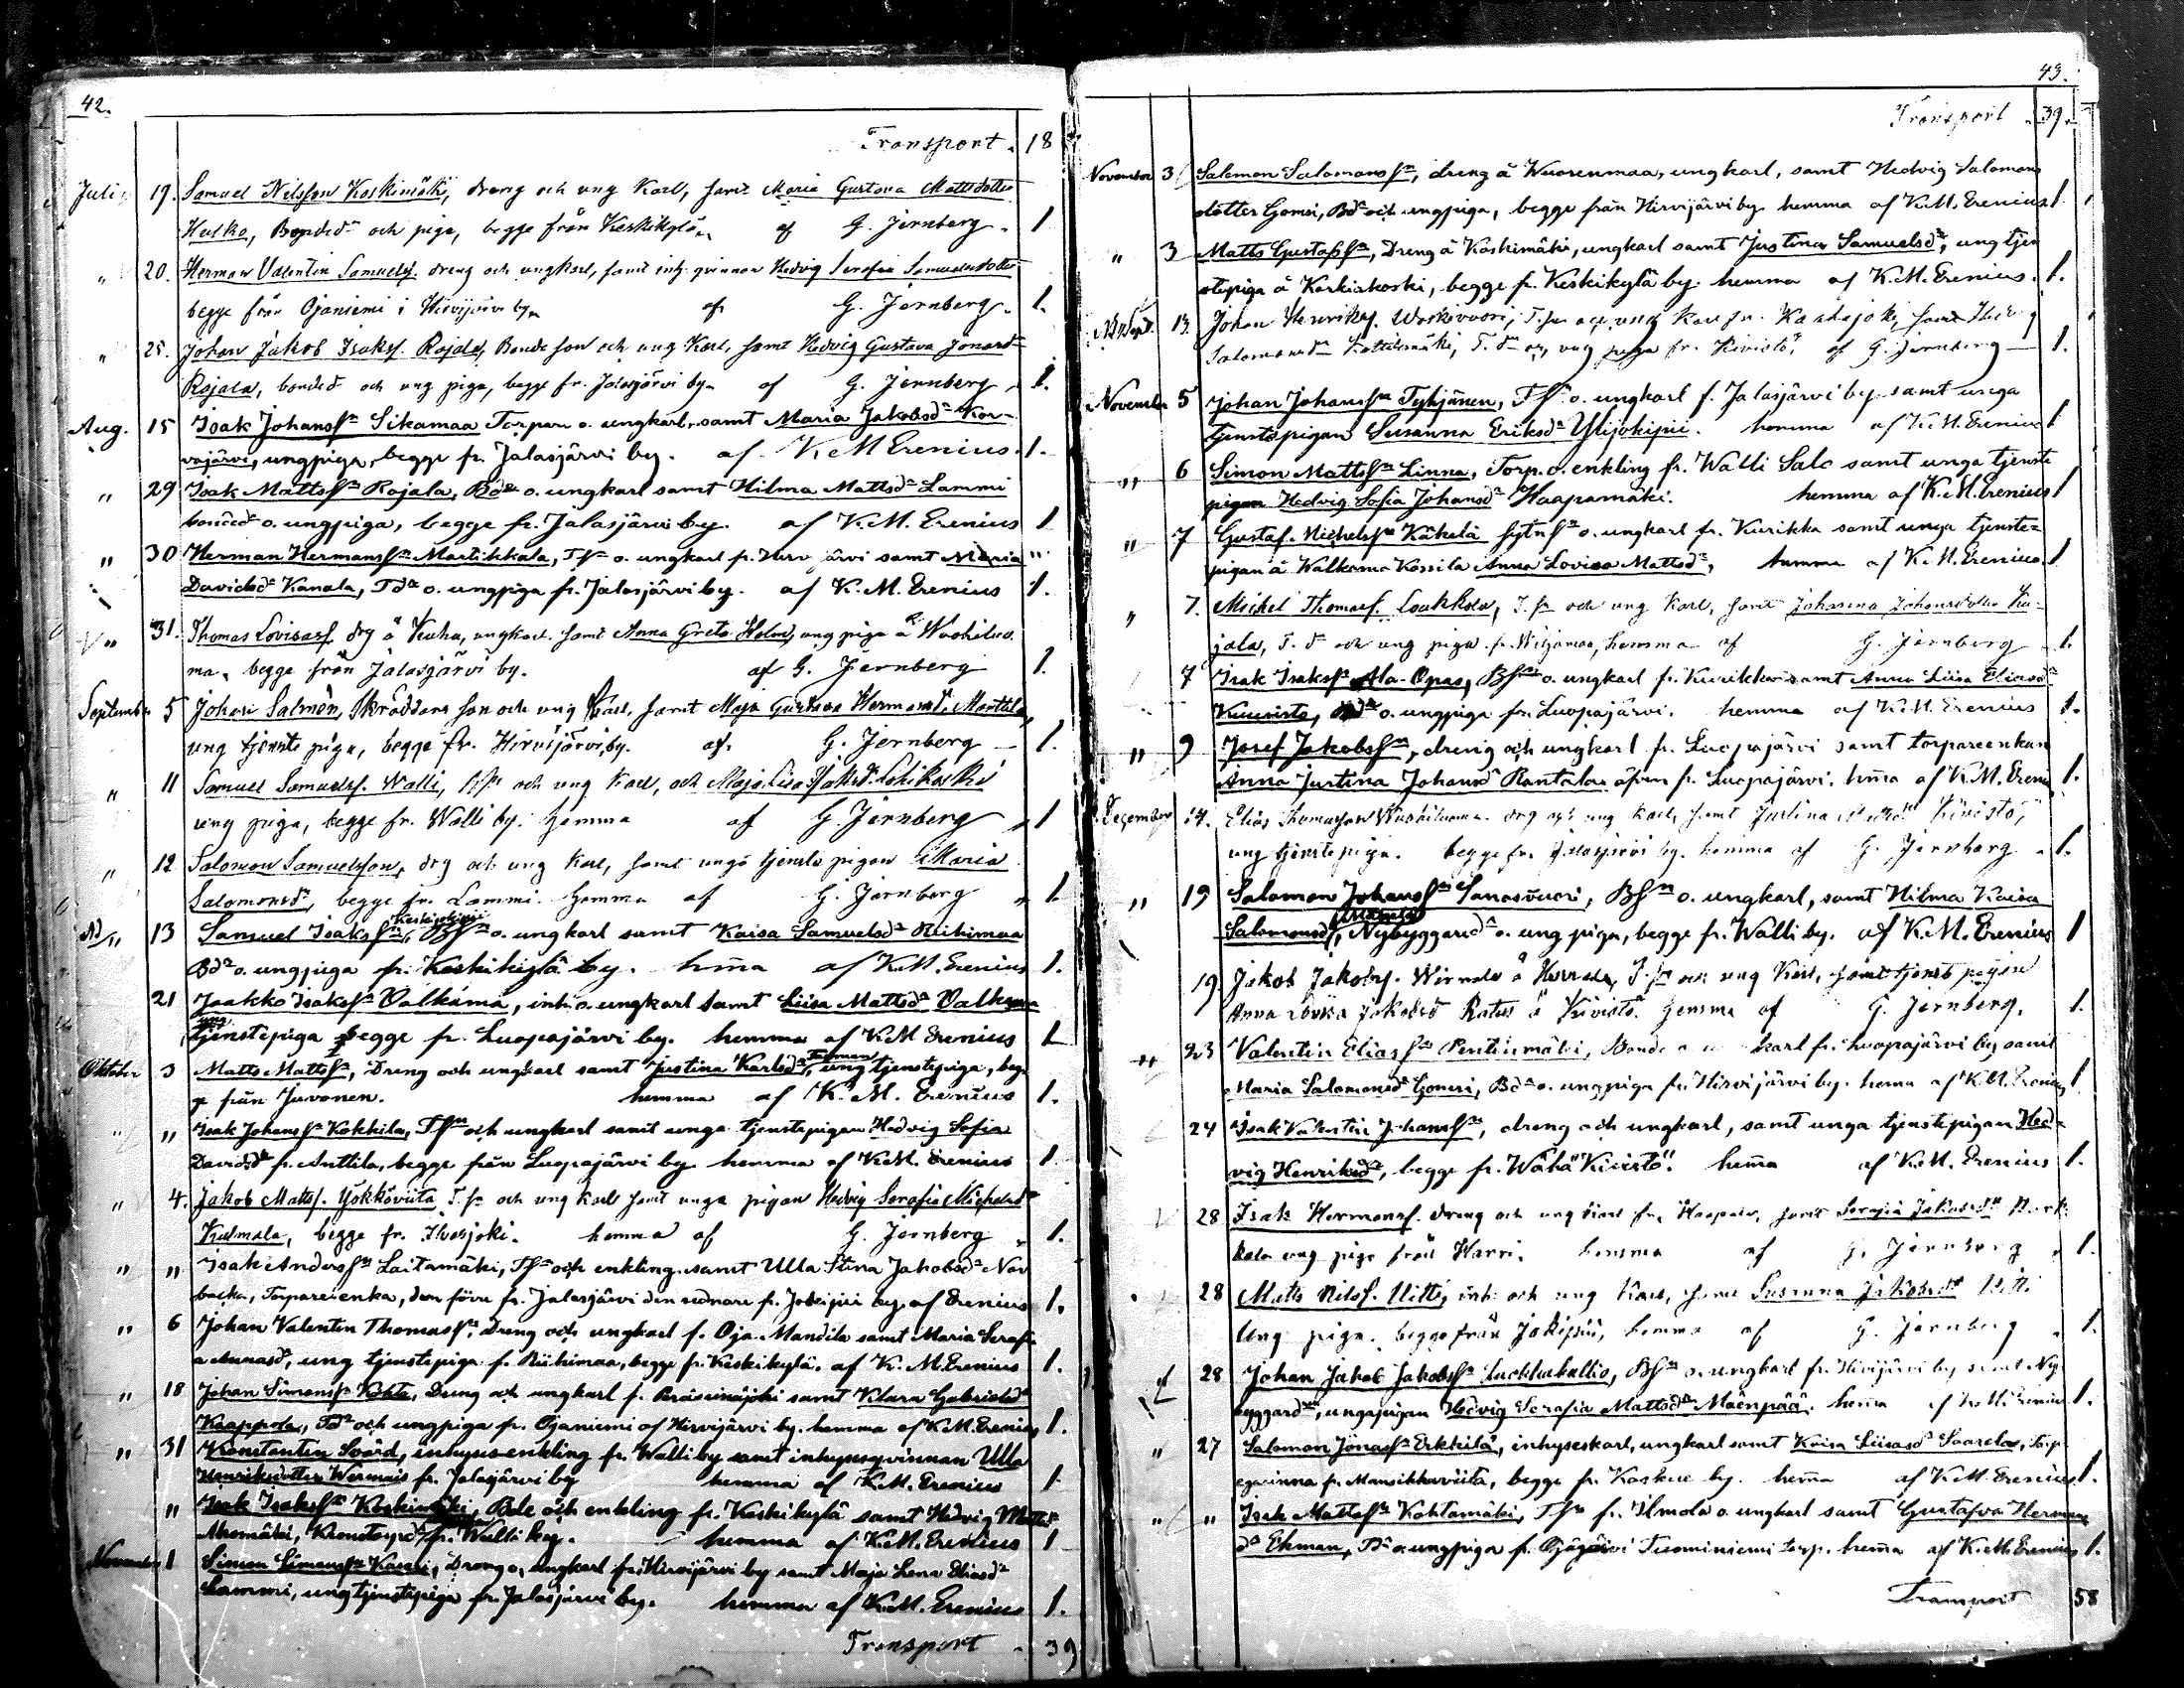 42.
Transport. 18
Juli 19. Samuel Nilsson Koskimäki, dreng och ung Karl, samt Maria Gustava Mattsdotter
Hulko, Bonded och piga, begge från Keskikylä af G. Jernberg. 1
" 20. Herman Valentin Samuelss. dreng och ungkarl, samt inh. qvinnan Hedvig Serafia Samuelsdotter
begge från Ojaniemi i Hirvijärvi by af G. Jernberg. 1.
" 25. Johan Jakob Isakss. Rajala, Bonde son och ung Karl, samt Hedvig Gustava Jonasdr
Rajala, bonded och ung piga, begge fr. Jalasjärvi by. af G. Jernberg 1.
Aug. 15 Isak Johansson Sikamaa Torpare o. ungkarl, samt Maria Jakobsdr Kor-
vajärvi, ungpiga, begge fr. Jalasjärvi by. af K M Erenius. 1.
" 29 Isak Mattsson Rajala, o. ungkarl samt Hilma Mattsdr Lammi
bonded o. ungpiga, begge fr. Jalasjärvi by. af K.M. Erenius 1
" 30 Herman Hermansson Martikkala, o. ungkarl fr. samt Maria
Davidsdr Kanala, Tdr o. ungpiga fr. Jalasjärvi by. af K. M. Erenius 1.
" 31. Thomas Lovisass. drg å Kuha, ungkarl. samt Anna Greta Holm, ung piga å
ma, begge från Jalasjärvi by. af G. Jernberg 1.
September 5 Johan Salmén, Skräddare son och ung Karl, samt Maja Gustava Hermansd. Marttila,
ung tjenste piga, begge fr. Hirvijärvi by. af G. Jernberg 1.
" 11 Samuel Samuelss. Walli, och ung Karl, och Maja Lisa Lehikoski
ung piga, begge fr. Walli by. hemma af G. Jernberg 1
" 12 Salomon Samuelsson, drg och ung Karl, samt unga tjenste pigan Maria
Salomonsdr, begge fr. Lammi. hemma af G. Jernberg 1
" 13 Samuel Isaksson, o. ungkarl samt Kaisa Samuelsdr Riihimaa
Bdr o. ungpiga fr. Keskikylä by. hma af K.M. Erenius 1.
21 Jaakko Isaksson Valkama, inh. o. ungkarl samt Liisa Mattsdr Valkama
ung
tjenstepiga begge fr. Luopajärvi by. hemma af K.M Erenius 1
Oktober 3 Matts Mattsson, Dreng och ungkarl samt Justina Karlsdr, ung tjenstepiga, beg-
ge från Juvonen. hemma af K. M. Erenius 1.
" " Isak Johansson Kokkila, Tson och ungkarl samt unga tjenstepigan Hedvig Sofia
Davidsdr fr. Anttila, begge från Luopajärvi by hemma af K.M. Erenius 1
" 4. Jakob Mattss. Yökköviita T. sn och ung karl samt unga pigan Hedvig Serafia Michelsdr
Kulmala, begge fr. Ilvesjoki. hemma af G. Jernberg 1.
" " Isak Andersson Laitamäki, Tson och enkling samt Ulla Stina Jakobsdr Nor
backa, Torpareenka, den förre fr. Jalasjärvi den sednare fr. Jokipii by. af Erenius 1.
" 6 Johan Valentin Thomasson, dreng och ungkarl f. Oja-Mandila samt Maria Serafi
a Annasdr, ung tjenstepiga f. Riihimaa, begge fr. Keskikylä. af K. M. Erenius 1.
" 18 Johan Simonsson Kohta, Dreng och ungkarl f. Peräseinäjoki samt Klara Gabrielsdr
Kaappola, Tdr och ungpiga fr. Ojaniemi af Hirvijärvi by. hemma af K.M. Erenius 1.
" 31 Konstantin Svärd, inhysesenkling fr. Walli by samt inhysesqvinnan Ulla
Henriksdotter fr. Jalasjärvi by hemma af K.M. Erenius 1
" Isak Isaksson Koskimäki, Bde och enkling fr. Keskikylä samt Hedvig Mattsdr
fr. Walli by. hemma af K.M. Erenius 1
November 1 Simon Simonsson, Dreng o. ungkarl fr. Hirvijärvi by samt Maja Lena Eliasdr
Lammi, ung tjenstepiga fr. Jalasjärvi by. hemma af K.M. Erenius 1.
Transport 39
43.
Transport 39.
November 3 Salomon Salomonsson, dreng å Wuorenmaa, ungkarl, samt Hedvig Salomons
dotter Gomsi, Bdr och ungpiga, begge från Hirvijärvi by hemma af K.M. Erenius 1.
" 3 Matts Gustafsson, Dreng å Koskimäki, ungkarl samt Justina Samuelsdr, ung tjen
stepiga å Korkiakoski, begge fr. Keskikylä by. hemma af K.M. Erenius. 1.
13. Johan Henrikss. och ung Karl fr. samt
Salomonsdr T. dr och ung piga fr. Kivistö, af G. Jernberg 1.
November 5 Johan Johansson Tyhjänen, Tsn o. ungkarl f. Jalasjärvi by samt unga
tjenstepigan Susanna Eriksdr Ylijokipii. hemma af K.M. Erenius 1
" 6 Simon Mattsson Linna, Torp. o. enkling fr. Walli Salo samt unga tjenste
pigan Hedvig Sofia Johansdr Haapamäki. hemma af K.M. Erenius 1
" 7 Gustaf Michelsson Kähelä o. ungkarl fr. Kurikka samt unga tjenste=
pigan å Walkama Kossila Anna Lovisa Mattsdr, hemma af K.M. Erenius. 1
" 7. Michel Thomass. Loukkola, T. sn och ung Karl, samt Johanna Johansdotter
jala, T. d och ung piga fr. hemma af G. Jernberg 1.
7 Isak Isaksson Ala-Opas, o. ungkarl fr. Kurikka samt Anna Liisa Eliasdr
o. ungpiga fr. Luopajärvi. hemma af K.M. Erenius 1.
" 9 Josef Jakobsson, dreng och ungkarl fr. Luopajärvi samt torpareenkan
Anna Justina Johansdr Rantala även fr. Luopajärvi. hma af K.M. Ereni 1.
December 14. Elias Thomasson drg och ung Karl, samt Justina Kivistö,
ung tjenstepiga. begge fr. Jalasjärvi by. hemma af G. Jernberg 1.
" 19 Salomon Johansson, o. ungkarl, samt Hilma Kaisa
Salomonsd, Nybyggared o. ung piga, begge fr. Walli by. af K.M. Erenius 1
19. Jakob Jakobss. och ung Karl, samt tjenste pigan
Anna Lovisa Jakobsd Ratus å Kivistö. hemma af G. Jernberg. 1.
23 Valentin Eliasson Pentinmäki, Bonde karl fr. Luopajärvi by samt
Maria Salomonsdr Gomsi, Bdr o. ungpiga fr. Hirvijärvi by. hemma af K.M. Erenius 1
24 Isak Valentin Johansson, dreng och ungkarl, samt unga tjenstepigan Hed-
vig Henriksdr, begge fr. Wähä Kivistö. hma af K.M. Erenius 1.
28 Isak Hermanss. dreng och ung karl fr. samt Serafia Jakobsdr
kola ung piga från Harri. hemma af G. Jernberg 1.
28 Matts Nilss. Uitti, inh. och ung Karl, samt Susanna Jakobsdr
Ung piga. begge från Jokipii, hemma af G. Jernberg 1.
28 Johan Jakob Jakobsson Luokkakallio, o. ungkarl fr. Hirvijärvi by samt Ny-
byggaredr, unga pigan Hedvig Serafia Mattsdr Mäenpää. hemma af K.M. Erenius 1.
" 27 Salomon Jonasson Erkkilä, inhyseskarl, ungkarl samt Kaisa Liisasdr Saarela,
eqvinna fr. Mansikkaviita, begge fr. Koskue by. hemma af K.M. Erenius 1.
" " Isak Mattsson Kohtamäki, Tsn fr. Ilmola o. ungkarl samt Gustafva Herman
dr Ekman, o. ungpiga fr. Tuominiemi torp. hemma af K.M. Erenius 1.
Transport 58